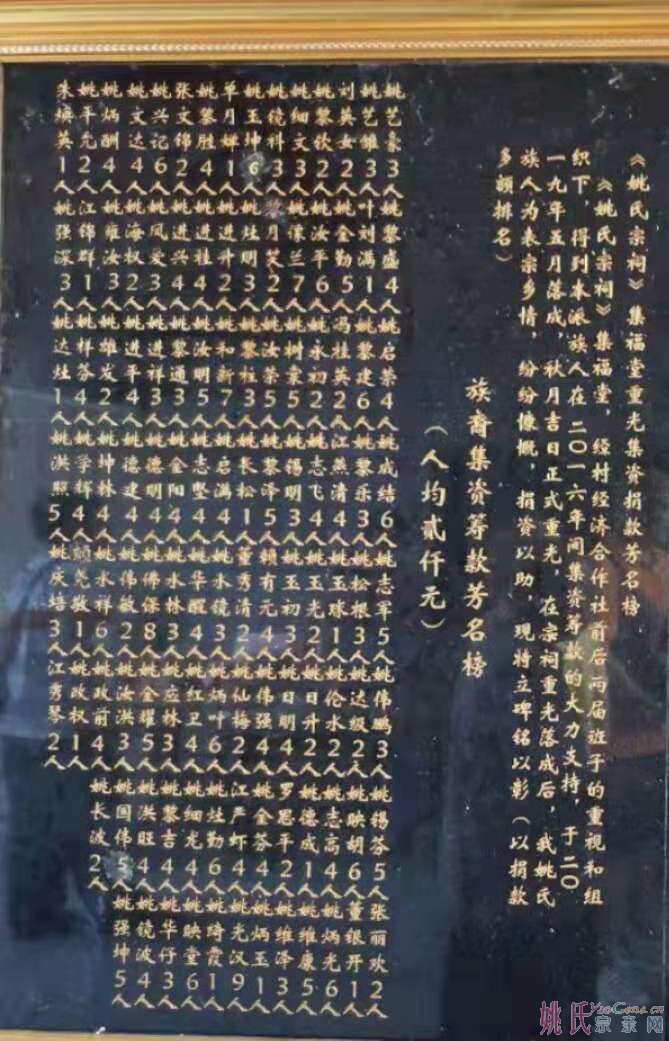 《姚氏宗祠》集福堂重光集资捐款芳名榜
《姚氏宗祠》集福堂，经村经济合作社前后两届班子的重视和组
织下，得到本派族人在二〇一六年间集资筹款的大力支持，于二〇
一九年五月落成，秋月吉日正式重光，在宗祠重光落成后，我姚氏
族人为表宗乡情，纷纷慷慨，捐资以助，现特立碑铭以彰（以捐款
多额排名）
族裔集资筹款芳名榜
（人均贰仟元）
姚艺豪3人姚黎盛4人姚启荣4人姚成结6人姚志军5人姚伟鹏3人姚锡芬5人张丽欢2人
姚艺雄3人叶刘满1人姚黎建6人姚黎乐3人姚松根3人姚达级2人姚映胡6人董银开1人
刘英女2人姚金勤5人冯桂英2人江燕清4人姚玉球1人姚伦水2人姚志高4人姚炳光6人
姚黎钦2人姚汝平6人姚永初2人姚志飞4人姚玉光2人姚日升2人姚德成1人姚维康5人
姚细文3人姚像兰7人姚树棠5人姚锡明3人姚玉初3人姚日明4人罗思平2人姚维泽3人
姚镜科3人黎月笑2人姚汝荣5人姚黎泽5人赖有元4人姚伟强4人姚金芬4人姚炳玉1人
姚玉坤6人姚灶明3人姚黎柱3人姚长松1人董秀清2人姚仙梅2人江产虾4人姚光汉9人
单月婵1人姚进升2人姚和新7人姚启满4人姚水镜4人姚炳叶6人姚灶勤6人姚绮霞1人
姚黎胜4人姚进桂4人姚汝明5人姚志坚4人姚华醒4人姚红卫4人姚细龙4人姚映堂6人
张文锦2人姚进兴4人姚黎通3人姚金阳4人姚水林3人姚应林3人姚黎吉4人姚华仔3人
姚兴记6人姚凤爱2人姚进祥3人姚德明4人姚佛保8人姚金耀5人姚洪旺4人姚镜波4人
姚文达4人姚海权3人姚进平2人姚德建4人姚伟敏2人姚汝洪3人姚国伟5人姚强坤5人
姚炳酬4人姚锦汝3人姚雄发2人姚坤林4人姚水祥6人姚政前4人姚长波2人
姚平允2人江锦群1人姚样答4人姚学辉4人赖尧敬1人姚改权1人
朱焕英1人姚强深3人姚达灶1人姚洪照5人姚庆培3人江秀琴2人
姚氏宗亲网
YaoGens.cn